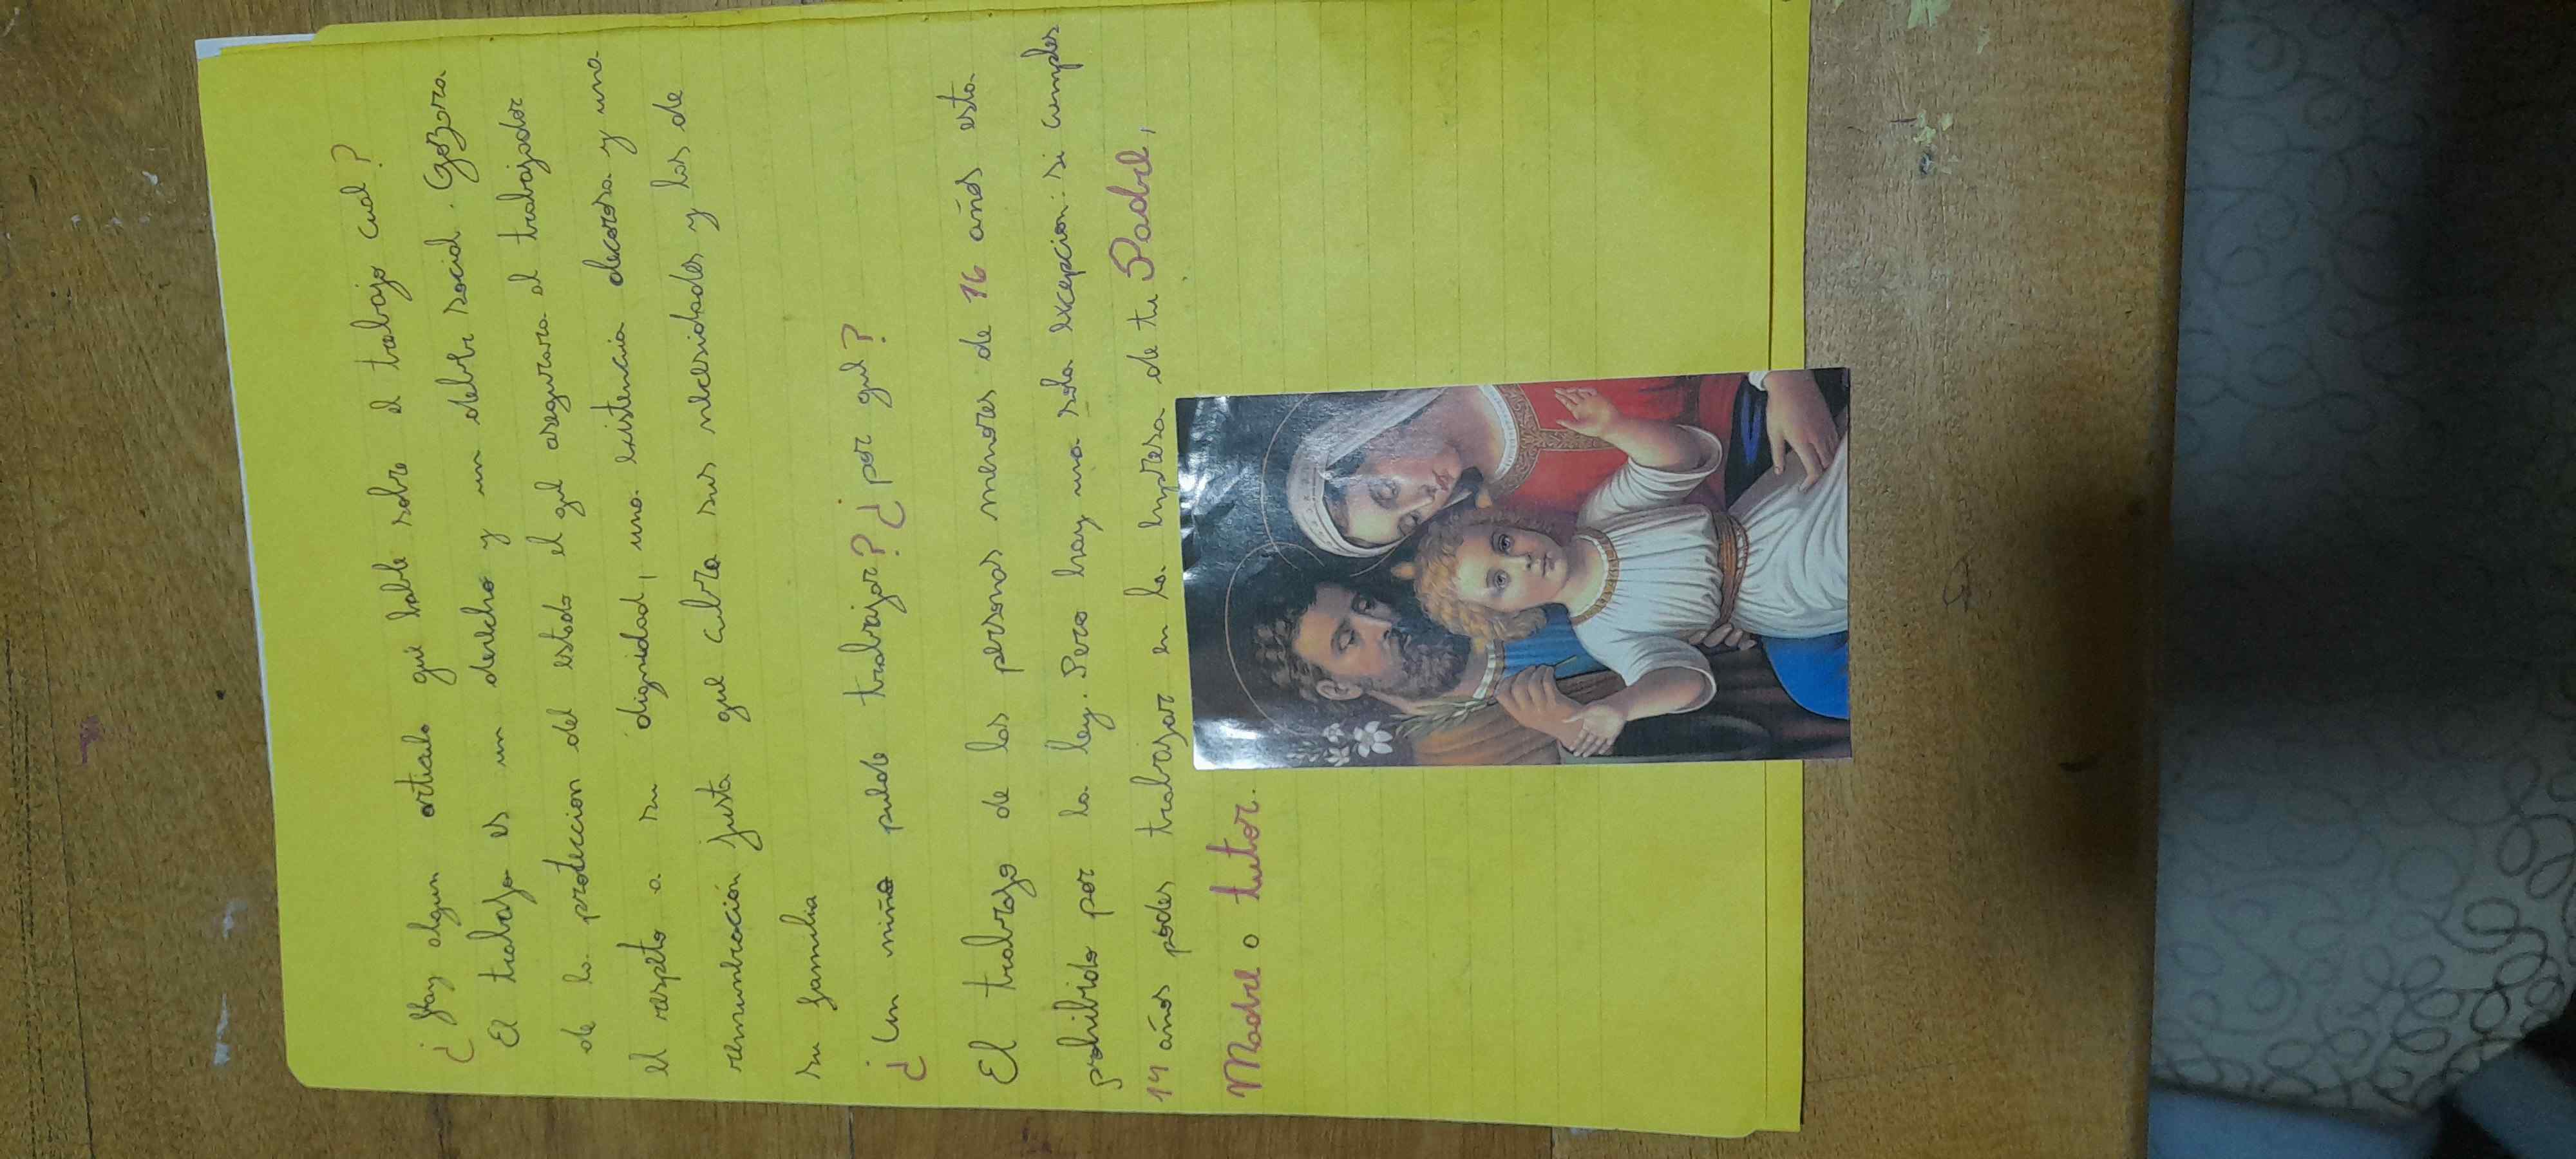 ¿Hay algun articulo que hable sobre el trabajo cual?
El trabajo es un derecho y un deber social. Gozara
de la proteccion del estado el que asegurara al trabajador
el respeto a su dignidad, una existencia decorosa y una
remuneración justa que cubra sus necesidades y las de
su familia
¿Un niño puede trabajar? ¿por qué?
El trabajo de las personas menores de 16 años esta
prohibido por la ley. Pero hay una sola excepcion: si cumples
14 años podes trabajar en la empresa de tu Padre,
Madre o tutor.